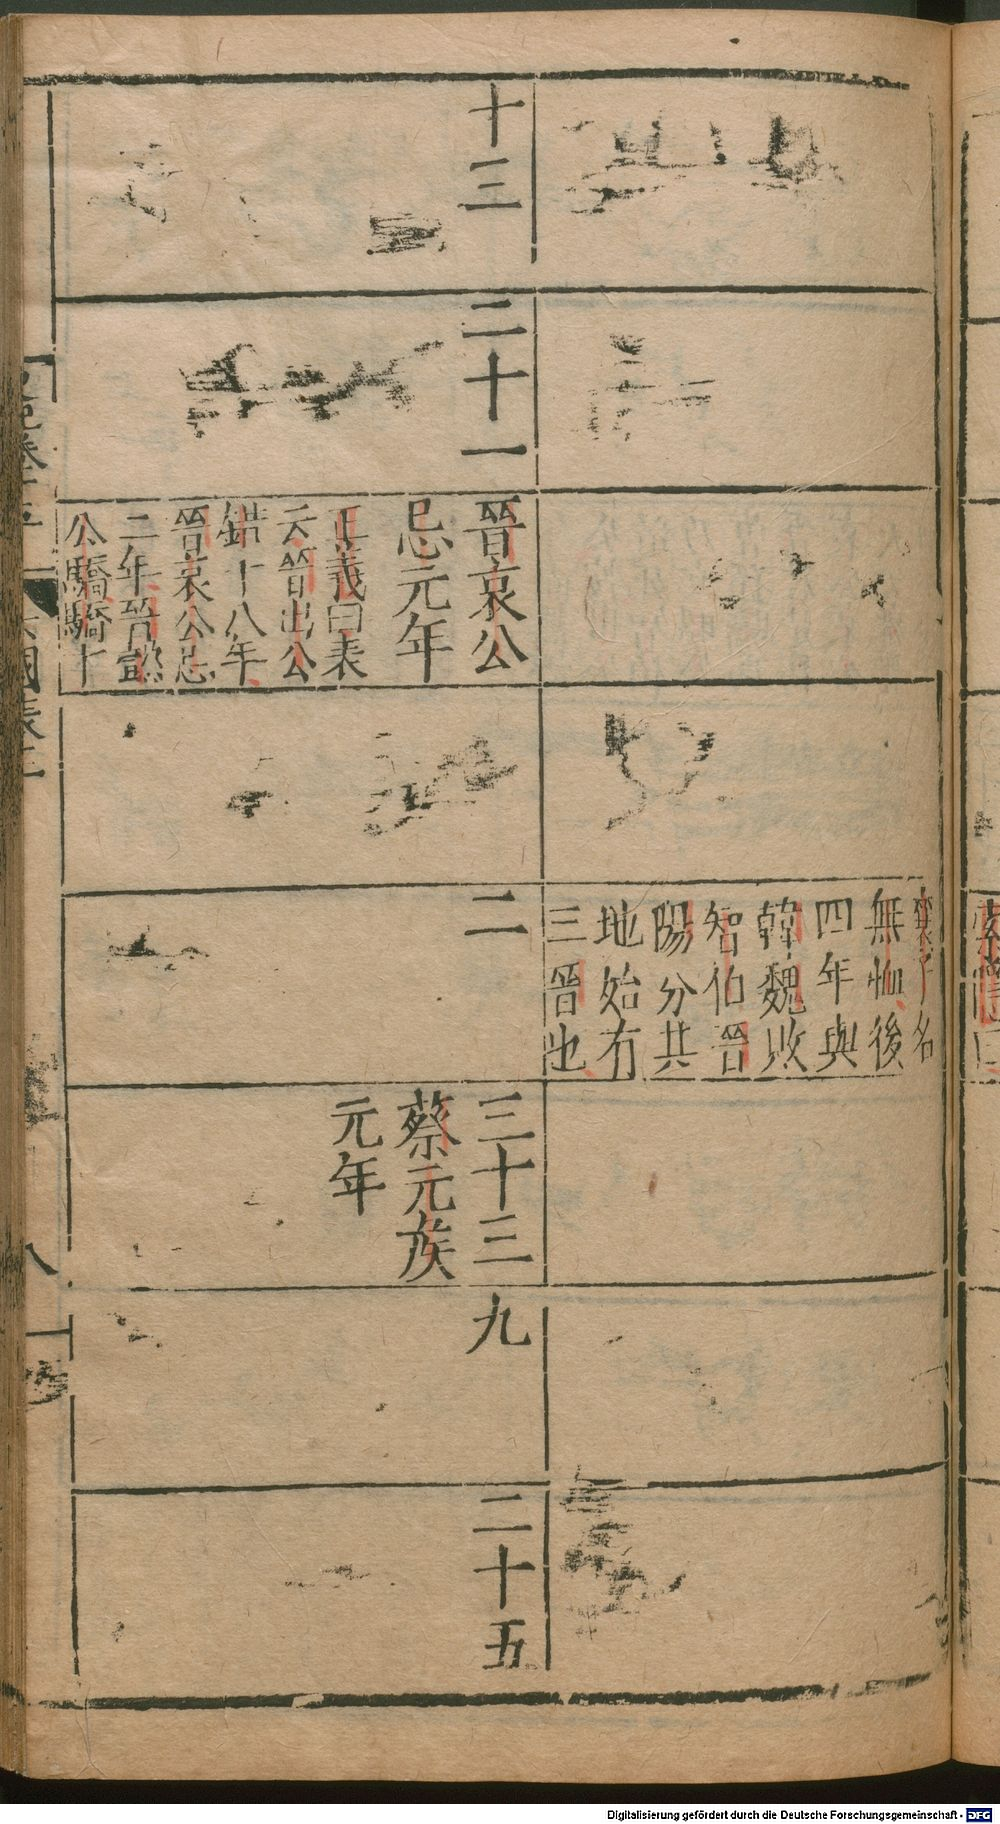 襄子名
無恤後
四年與
韓魏敗
智伯晉
陽分共
地始有
三晉也
十三
二十一
晉哀公
忌元年
正義曰表
云晉出公
錯十八年
晉哀公忌
二年晉懿
公驕驕十
二
三十三
蔡元矦
元年
九
二十五
國表三
八
Digitalisierung gefördert durch die Deutsche Forschungsgemeinschaft - DFG